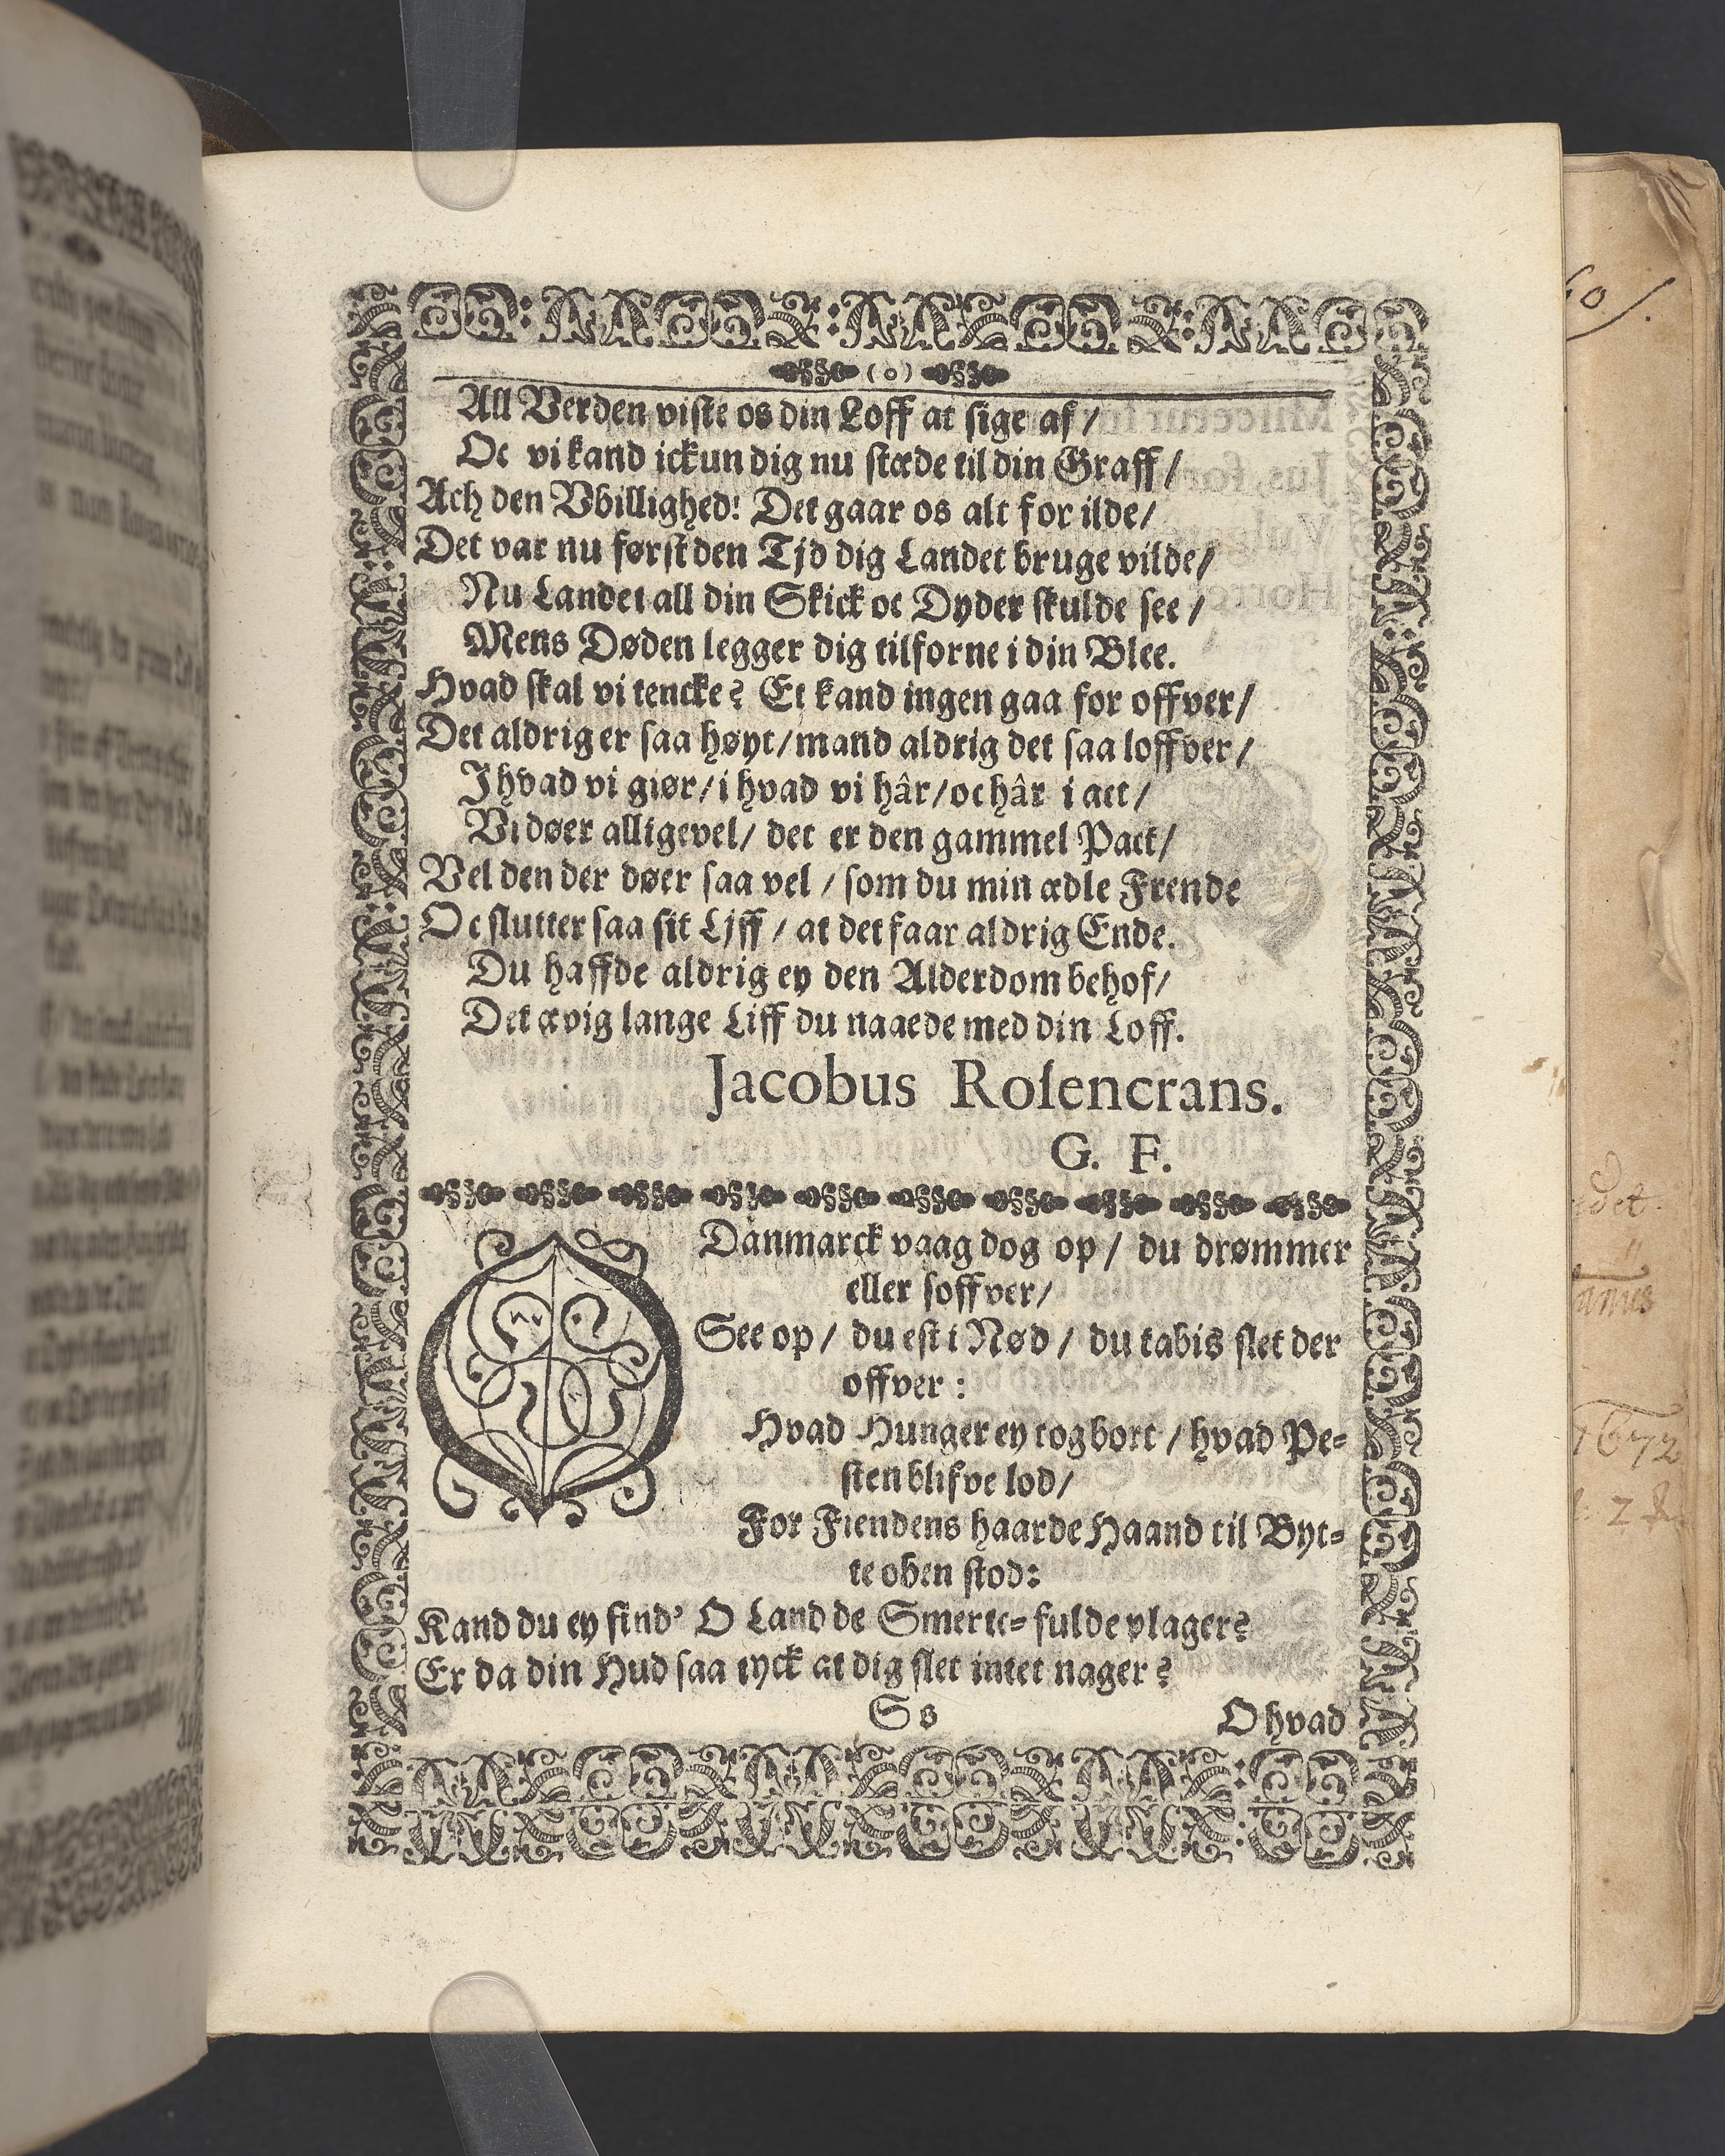 (o)
All Verden viste os din Loff at sige af/
Oc vi kand ickun dig nu stæde til din Graff/
Ach den Vbillighed! Det gaar os alt for ilde/
Det var nu først den Tjd dig Landet bruge vilde/
Nu Landet all din Skick oc Dyder skulde see/
Mens Døden legger dig tilforne i din Blee.
Hvad skal vi tencke? Et kand ingen gaa for offver/
Det aldrig er saa høyt/mand aldrig det saa loffver/
Jhvad vi giør/i hvad vi hâr/oc hâr i act/
Vi døer alligevel/ det er den gammel Pact/
Vel den der døer saa vel/ som du min ædle Frende
Oc slutter saa sit Ljff/ at det faar aldrig Ende.
Du haffde aldrig ey den Alderdom behof/
Det ævig lange Liff du naaede med din Loff.
Jacobus Rosencrans.
G. F.
O Danmarck vaag dog op/ du drømmer
eller soffver/
See op/ du est i Nød/ du tabis slet der
offver:
Hvad Hunger ey tog bort/ hvad Pe=
sten blifve lod/
For Fiendens haarde Haand til Byt=
te oben stod:
Kand du ey find' O Land de Smerte=fulde plager?
Er da din Hud saa tyck at dig slet intet nager?
Ss
O hvad
60/.
1672